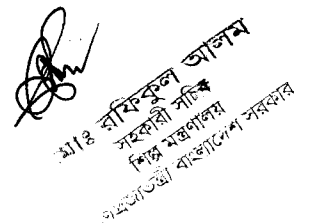 মোঃ রফিকুল আলম
সহকারী সচিব
শিল্প মন্ত্রণালয়
গণপ্রজাতন্ত্রী বাংলাদেশ সরকার